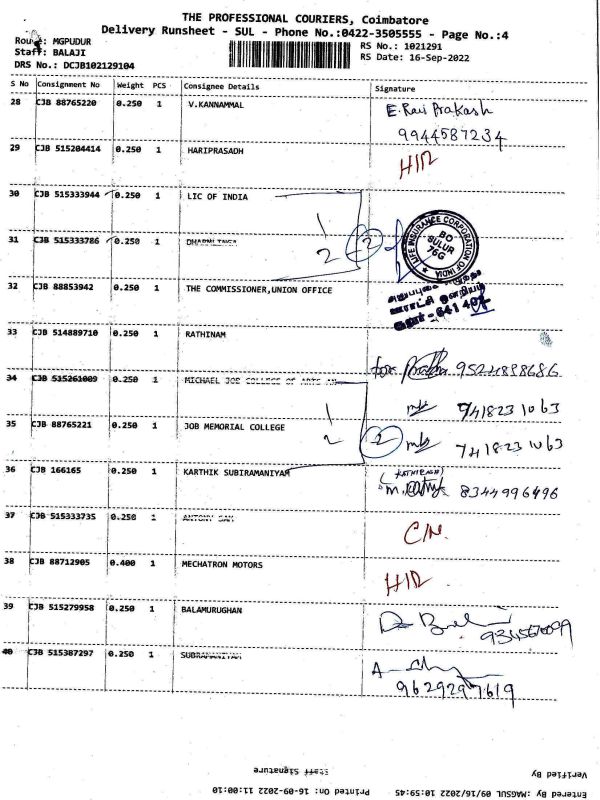 THE PROFESSIONAL COURIERS, Coimbatore
Delivery Runsheet - SUL - Phone No.:0422-3505555 - Page No.:4
Route: MGPUDUR
Staff: BALAJI
DRS No.: DCJB102129104
RS No.: 1021291
RS Date: 16-Sep-2022
S No Consignment No Weight PCS Consignee Details Signature
28 CJB 88765220 0.250 1 V.KANNAMMAL E. Ravi Prakash
9944587234
29 CJB 515204414 0.250 1 HARIPRASADH
30 CJB 515333944 0.250 1 LIC OF INDIA
1
2 2
LIFE INSURANCE CORPORATION OF INDIA
BO
SULUR
76G
31 CJB 515333786 0.250 1
32 CJB 88853942 0.250 1 THE COMMISSIONER,UNION OFFICE
641 402
33 CJB 514889710 0.250 1 RATHINAM
for 9524898686
34 CJB 515261009 0.250 1 MICHAEL JOB COLLEGE OF ARTS AN
1
2 2
9418231063
35 CJB 88765221 0.250 1 JOB MEMORIAL COLLEGE
7418231063
36 CJB 166165 0.250 1 KARTHIK SUBIRAMANIYAM
8344996496
37 CJB 515333735 0.250 1 ANTONY SAM
38 CJB 88712905 0.400 1 MECHATRON MOTORS
39 CJB 515279958 0.250 1 BALAMURUGHAN
40 CJB 515387297 0.250 1 SUBRAMANIYAM
9629297619
Staff Signature
Verified By
Printed On: 16-09-2022 11:00:10
Entered By: MAGSUL: 09/16/2022 10:59:45